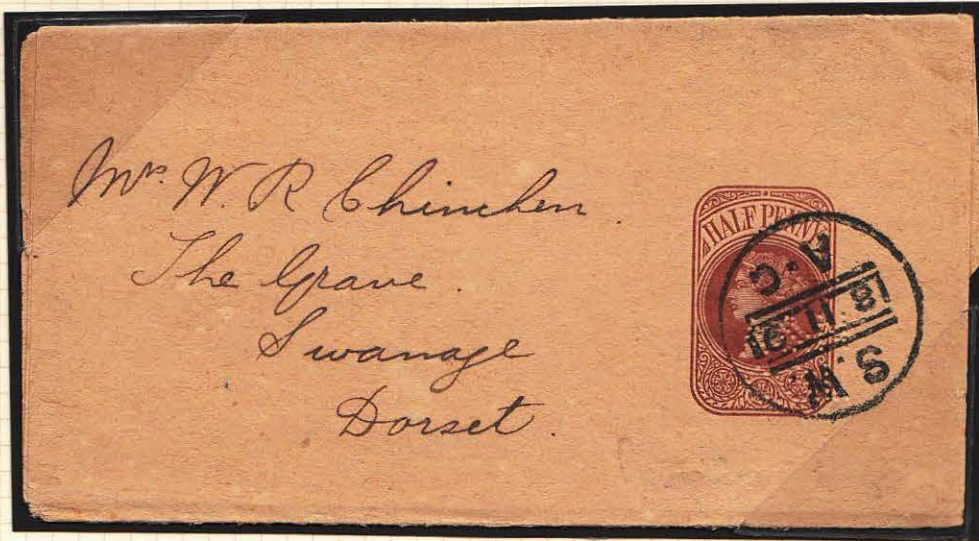 Mrs. W. R Chinchen.
The Grave.
Swanage
Dorset.
HALF PENNY
A·C
18 11 81
S.W.